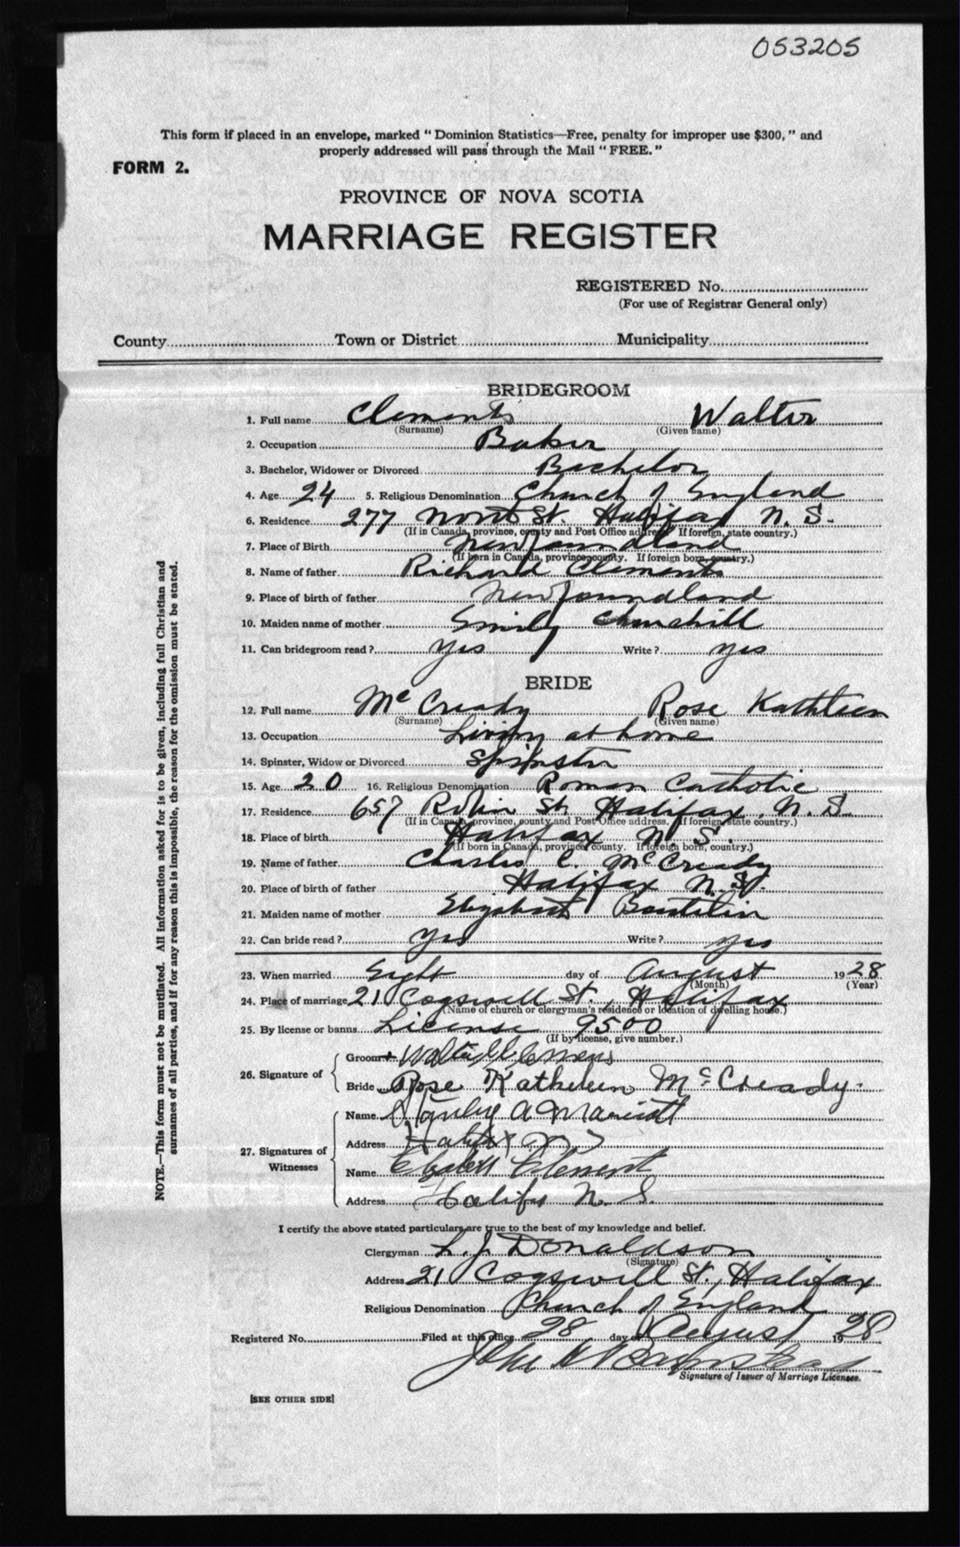 053205
This form if placed in an envelope, marked "Dominion Statistics—Free, penalty for improper use $300," and
properly addressed will pass through the Mail "FREE."
FORM 2.
PROVINCE OF NOVA SCOTIA
MARRIAGE REGISTER
REGISTERED No.
(For use of Registrar General only)
County Town or District Municipality
NOTE.—This form must not be mutilated. All information asked for is to be given, including full Christian and
surnames of all parties, and if for any reason this is impossible, the reason for the omission must be stated.
BRIDEGROOM
1. Full name Clements Walter
(Surname) (Given name)
2. Occupation Baker
3. Bachelor, Widower or Divorced Bachelor
4. Age 24 5. Religious Denomination Church of England
6. Residence 277 North St. Halifax N. S.
(If in Canada, province, county and Post Office address. If foreign, state country.)
7. Place of Birth Newfoundland
(If born in Canada, province, county. If foreign born, country.)
8. Name of father Richard Clements
9. Place of birth of father Newfoundland
10. Maiden name of mother Emily Churchill
11. Can bridegroom read? yes Write? yes
BRIDE
12. Full name McCready Rose Kathleen
(Surname) (Given name)
13. Occupation Living at home
14. Spinster, Widow or Divorced Spinster
15. Age 20 16. Religious Denomination Roman Catholic
17. Residence 657 Robie St. Halifax, N. S.
(If in Canada, province, county and Post Office address. If foreign, state country.)
18. Place of birth Halifax N. S.
(If born in Canada, province, county. If foreign born, country.)
19. Name of father Charles C. McCready
20. Place of birth of father Halifax N. S.
21. Maiden name of mother Elizabeth
22. Can bride read? yes Write? yes
23. When married Eight day of August 1928
(Month) (Year)
24. Place of marriage 21 Cogswell St., Halifax
(Name of church or clergyman's residence or location of dwelling house.)
25. By license or banns License 9500
(If by license, give number.)
26. Signature of
Groom Walter Clemens
Bride Rose Kathleen McCready.
27. Signatures of Witnesses
Name Stanley A Marriott
Address Halifax N S
Name Elizabeth Clement
Address Halifax N. S.
I certify the above stated particulars are true to the best of my knowledge and belief.
Clergyman L. J. Donaldson
(Signature)
Address 21 Cogswell St., Halifax
Religious Denomination Church of England
Registered No. Filed at this office 28 day of August 1928
John
Signature of Issuer of Marriage Licenses.
[SEE OTHER SIDE]